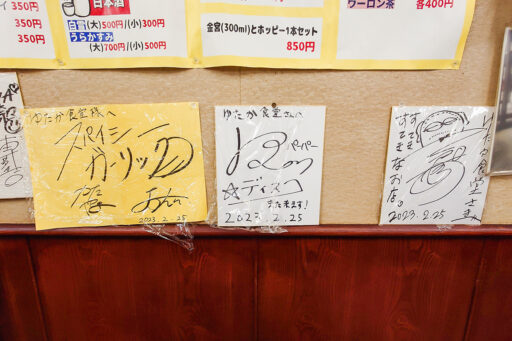 350円
350円
350円
日本酒
白雪(大)500円/(小)300円
うらかすみ
(大)700円/(小)500円
金宮(300ml)とホッピー1本セット
850円
ウーロン茶
各400円
ゆたか食堂様へ
スパイシー
ガーリック
2023.2.25
ゆたか食堂さんへ
ペーパー
☆ディスコ
また来ます!
2023.2.25
ゆたか食堂さま
すてきなお店。
2023.2.25